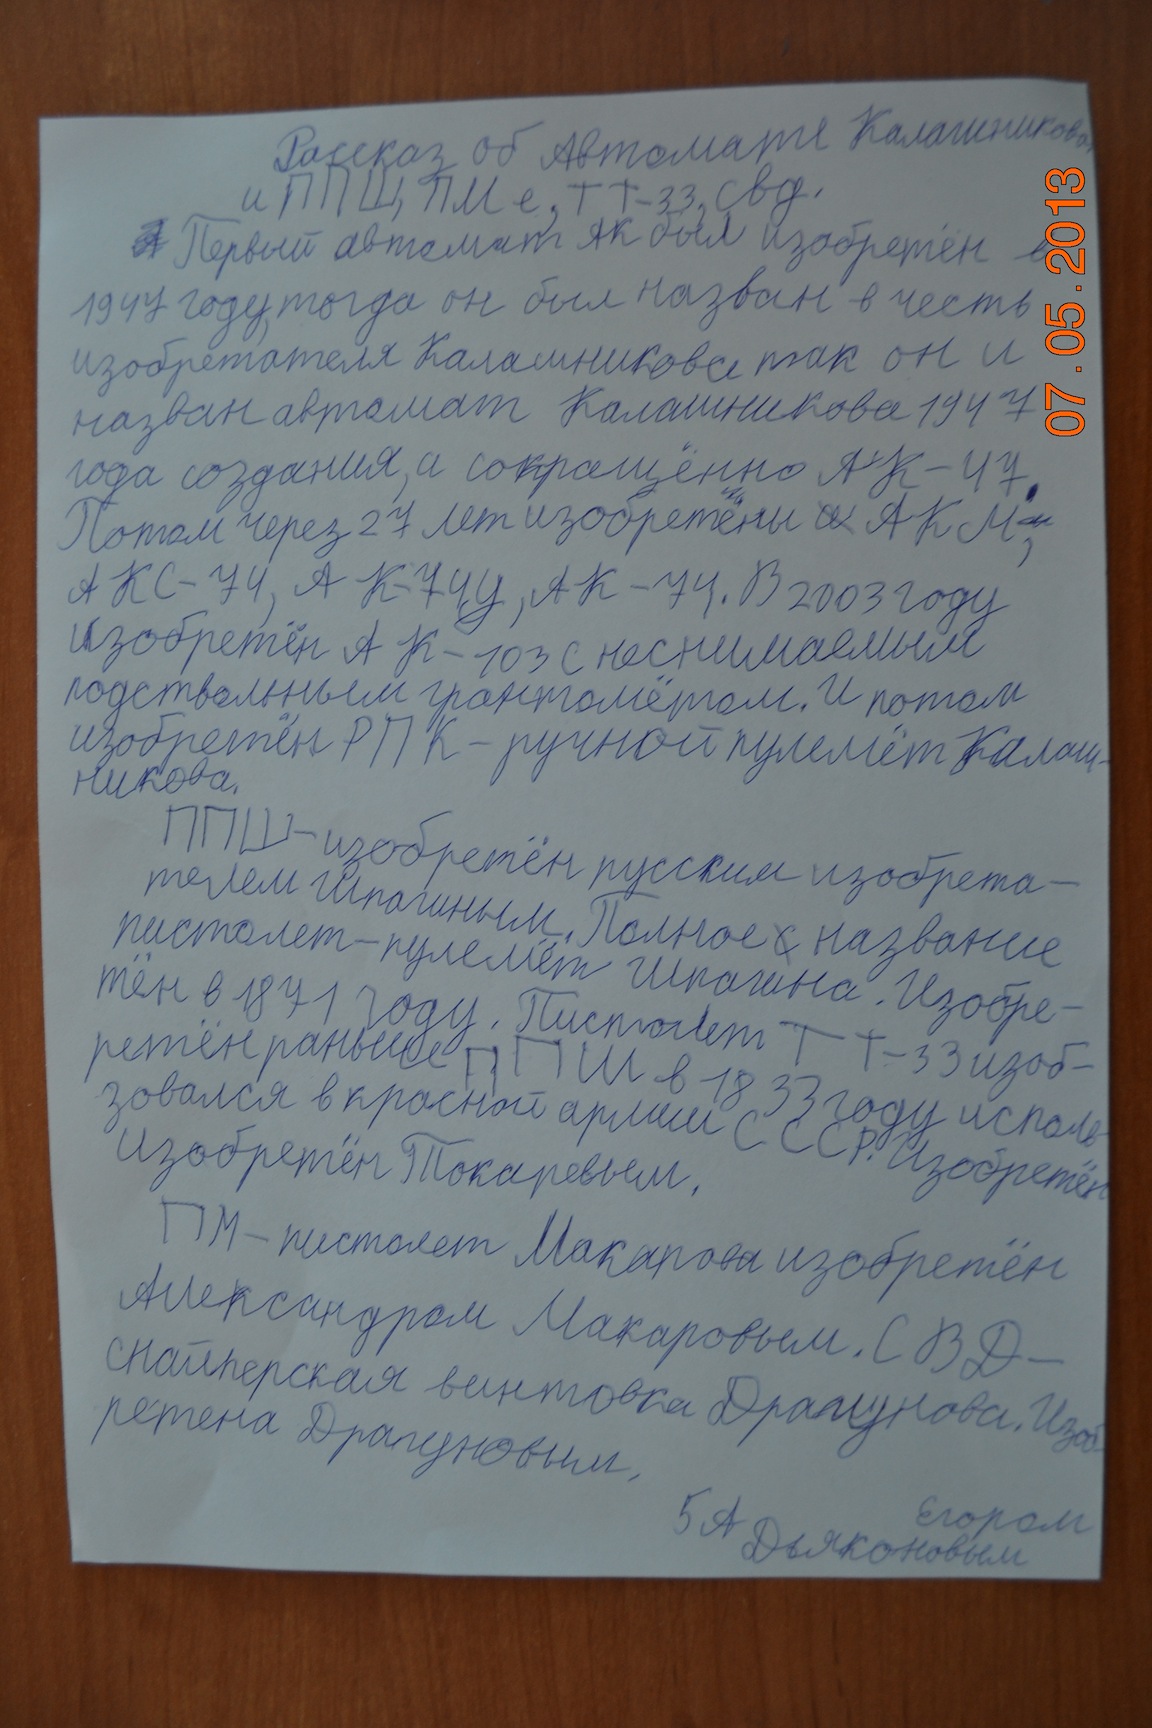 Рассказ об Автомате Калашникова
и ППШ, ПМе, ТТ-33, свд.
Первый автомат АК был изобретён в
1947 году, тогда он был назван в честь
изобретателя Калашникова так он и
назван автомат Калашникова 1947
года создания, а сокращённо АК-47.
Потом через 27 лет изобретёны АКМ,
АКС-74, АК-74У, АК-74. В 2003 году
изобретён АК-103 с неснимаемым
подствольным грантомётом. И потом
изобретён РПК - ручной пулемёт Калаш-
никова.
ППШ - изобретён русским изобрета-
телем Шпагиным. Полное название
пистолет-пулемёт Шпагина. Изобре-
тён в 1871 году. Пистолет ТТ-33 изоб-
ретён раньше ППШ в 1833 году исполь-
зовался в красной армии СССР. Изобретён
Изобретён Токаревым.
ПМ - пистолет Макарова изобретён
Александром Макаровым. СВД -
снайперская винтовка Драгунова. Изоб-
ретена Драгуновым.
5А Егором
Дьяконовым
07.05.2013